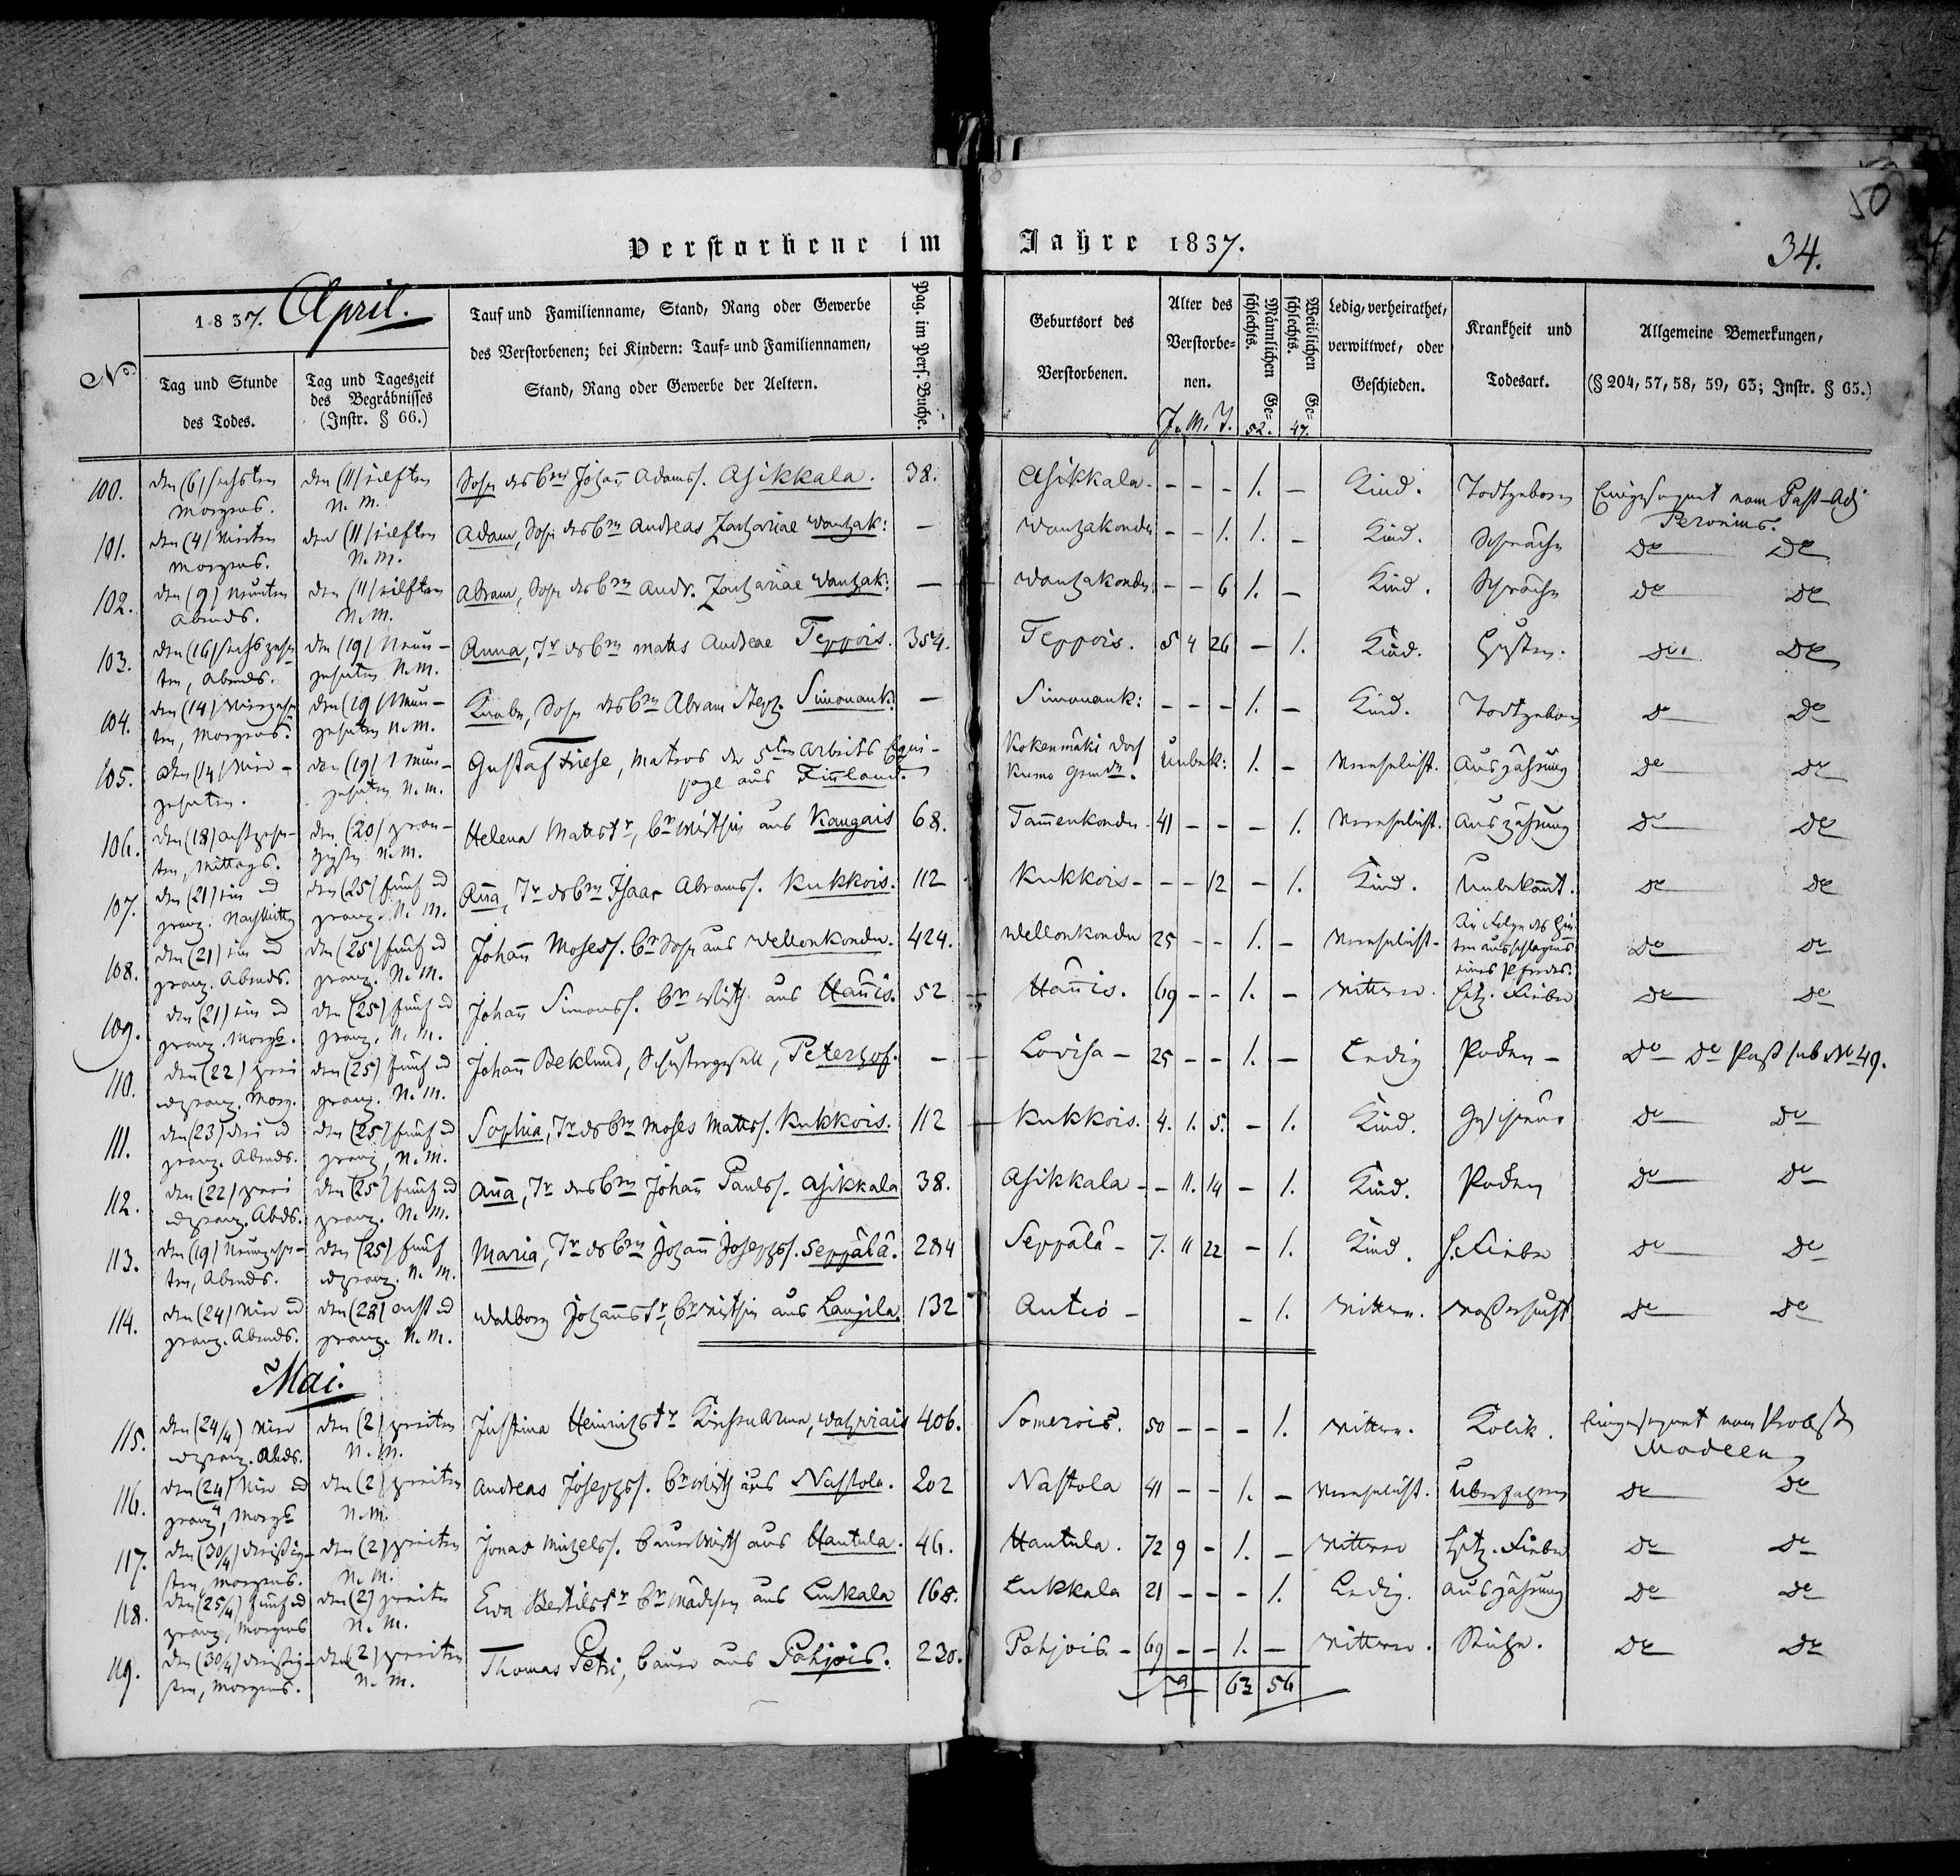 50
Verstorbene im Jahre 1837.
34.
No
1837. April.
Tag und Stunde
des Todes.
Tag und Tageszeit
des Begräbnisses
(Instr. § 66.)
Tauf und Familienname, Stand, Rang oder Gewerbe
des Verstorbenen; bei Kindern: Tauf- und Familiennamen,
Stand, Rang oder Gewerbe der Aeltern.
Pag. im Pers. Buche.
Geburtsort des
Verstorbenen.
Alter des
Verstorbe-
nen.
J. M. T.
Männlichen Ge-
schlechts.
52.
Weiblichen Ge-
schlechts.
47.
Ledig, verheirathet,
verwittwet, oder
Geschieden.
Krankheit und
Todesart.
Allgemeine Bemerkungen,
(§ 204, 57, 58, 59, 63; Instr. § 65.)
100. den (6) sechsten den (11) eilften Sohn des Brn Johan̄ Adamss. Asikkala. 38. Asikkala - - - - 1. - Kind. Todtgeboren Eingesegnet vom Past-Adj
Morgens. N. M. Peronius.
101. den (4) vierten den (11) eilften Adam, Sohn des Brn Andreas Zachariae Wanhak: - Wanhakondu - - 1. 1. - Kind. Schwäche do do
Morgens. N. M.
102. den (9) neunten den (11) eilften Abram, Sohn des Brn Andr. Zachariae Wanhak: - Wanhakondu - - 6 1. - Kind. Schwäche do do
Abends. N. M.
103. den (16) sechszehn den (19) neun- Anna, Tr des Brn Matts Andreae Teppois. 354. Teppois. 5 4 26 - 1. Kind. Husten. do do
ten, Abends. zehnten N. M.
104. den (14) vierzehn den (19) neun- Knabe, Sohn des Brn Abram Steph. Simonank: - Simonank: - - - 1. - Kind. Todtgeboren do do
ten, Morgens. zehnten N. M.
105. den (14) vier- den (19) neun- Gustaf Friese, Matros der 5ten Arbeits Equi- Kokenmäki Dorf Unbek: 1. - Verehelicht. Auszährung do do
zehnten. zehnten N. M. page aus Fin̄land. Kumo Gemde.
106. den (18) achtzehn- den (20) zwan- Helena Mattstr, Br Wirthin aus Kangais 68. Tam̄enkondu 41 - - - 1. Verehelicht. Auszährung do do
ten, Mittags. zigsten N. M.
107. den (21) ein ud den (25) fünf ud An̄a, Tr des Brn Isaac Abramss. Kukkois. 112 Kukkois - - - 12 - 1. Kind. Unbekan̄t. do do
zwanz. Nachmitt. zwanz. N. M.
108. den (21) ein ud den (25) fünf ud Johan̄ Mosess. Br Sohn aus Wellonkondu. 424. Wellonkondu 25 - - 1. - Verehelicht - In Folge des Hin-
ten ausschlagens
eines Pferdes. do do
zwanz. Abends. zwanz. N. M.
109. den (21) ein ud den (25) fünf ud Johan̄ Simonss. Br Wirth aus Han̄is. 52 Han̄is. 69 - - 1. - Wittwer. Hitz. Fieber do do
zwanz. Morgs. zwanz. N. M.
110. den (22) zwei den (25) fünf ud Johan̄ Beklund, Schustergesell, Peterhof. - Lovisa - 25 - - 1. - Ledig Pocken - do do Paß sub No 49.
ud zwanz. Morg. zwanz. N. M.
111. den (23) drei ud den (25) fünf ud Sophia, Tr des Brn Moses Mattss. Kukkois. 112 Kukkois. 4. 1. 5. - 1. Kind. Geschwür do do
zwanz. Abends. zwanz. N. M.
112. den (22) zwei den (25) fünf ud An̄a, Tr des Brn Johan̄ Paulss. Asikkala 38. Asikkala - - 11. 14 - 1. Kind. Pocken do do
ud zwanz. Abds. zwanz. N. M.
113. den (19) neunzehn- den (25) fünf Maria, Tr des Brn Johan̄ Josephss. Seppälä. 284 Seppälä - 7. 11 22 - 1. Kind. h. Fieber do do
ten, Abends. ud zwanz. N. M.
114. den (24) vier ud den (28) acht ud Walborg Johan̄str, Br Wirthin aus Laujila. 132 Antio - - 1. Wittwe. Waßersucht do do
zwanz. Abends. zwanz. N. M.
Mai.
115. den (24/4) vier den (2) zweiten Justina Heinrichstr Kirchenarme, Wahviais 406. Somerois. 50 - - - 1. Wittwe. Kolik. Eingesegnet vom Probst
ud zwanz. Abds. N. M. Modeen
116. den (24) vier ud den (2) zweiten Andreas Josephss. Br Wirth aus Nastola. 202 Nastola 41 - - 1. - Verehelicht. Überfahren do do
zwanz, Morgs N. M.
117. den (30/4) dreißig- den (2) zweiten Jonas Michelss. Bauerwirth aus Hantula. 46. Hantula. 72 9 - 1. - Wittwer Hitz. Fieber do do
sten, Morgens. N. M.
118. den (25/4) fünf ud den (2) zweiten Ewa Bertilstr Br Mädchen aus Lukkala 168. Lukkala 21 - - - 1. Ledig. Auszährung do do
zwanz, Morgens N. M.
119. den (30/4) dreißig- den (2) zweiten Thomas Petri, Bauer aus Pohjois. 230. Pohjois - 69 - - 1. - Wittwer. do do
sten, Morgens. N. M.
63 56